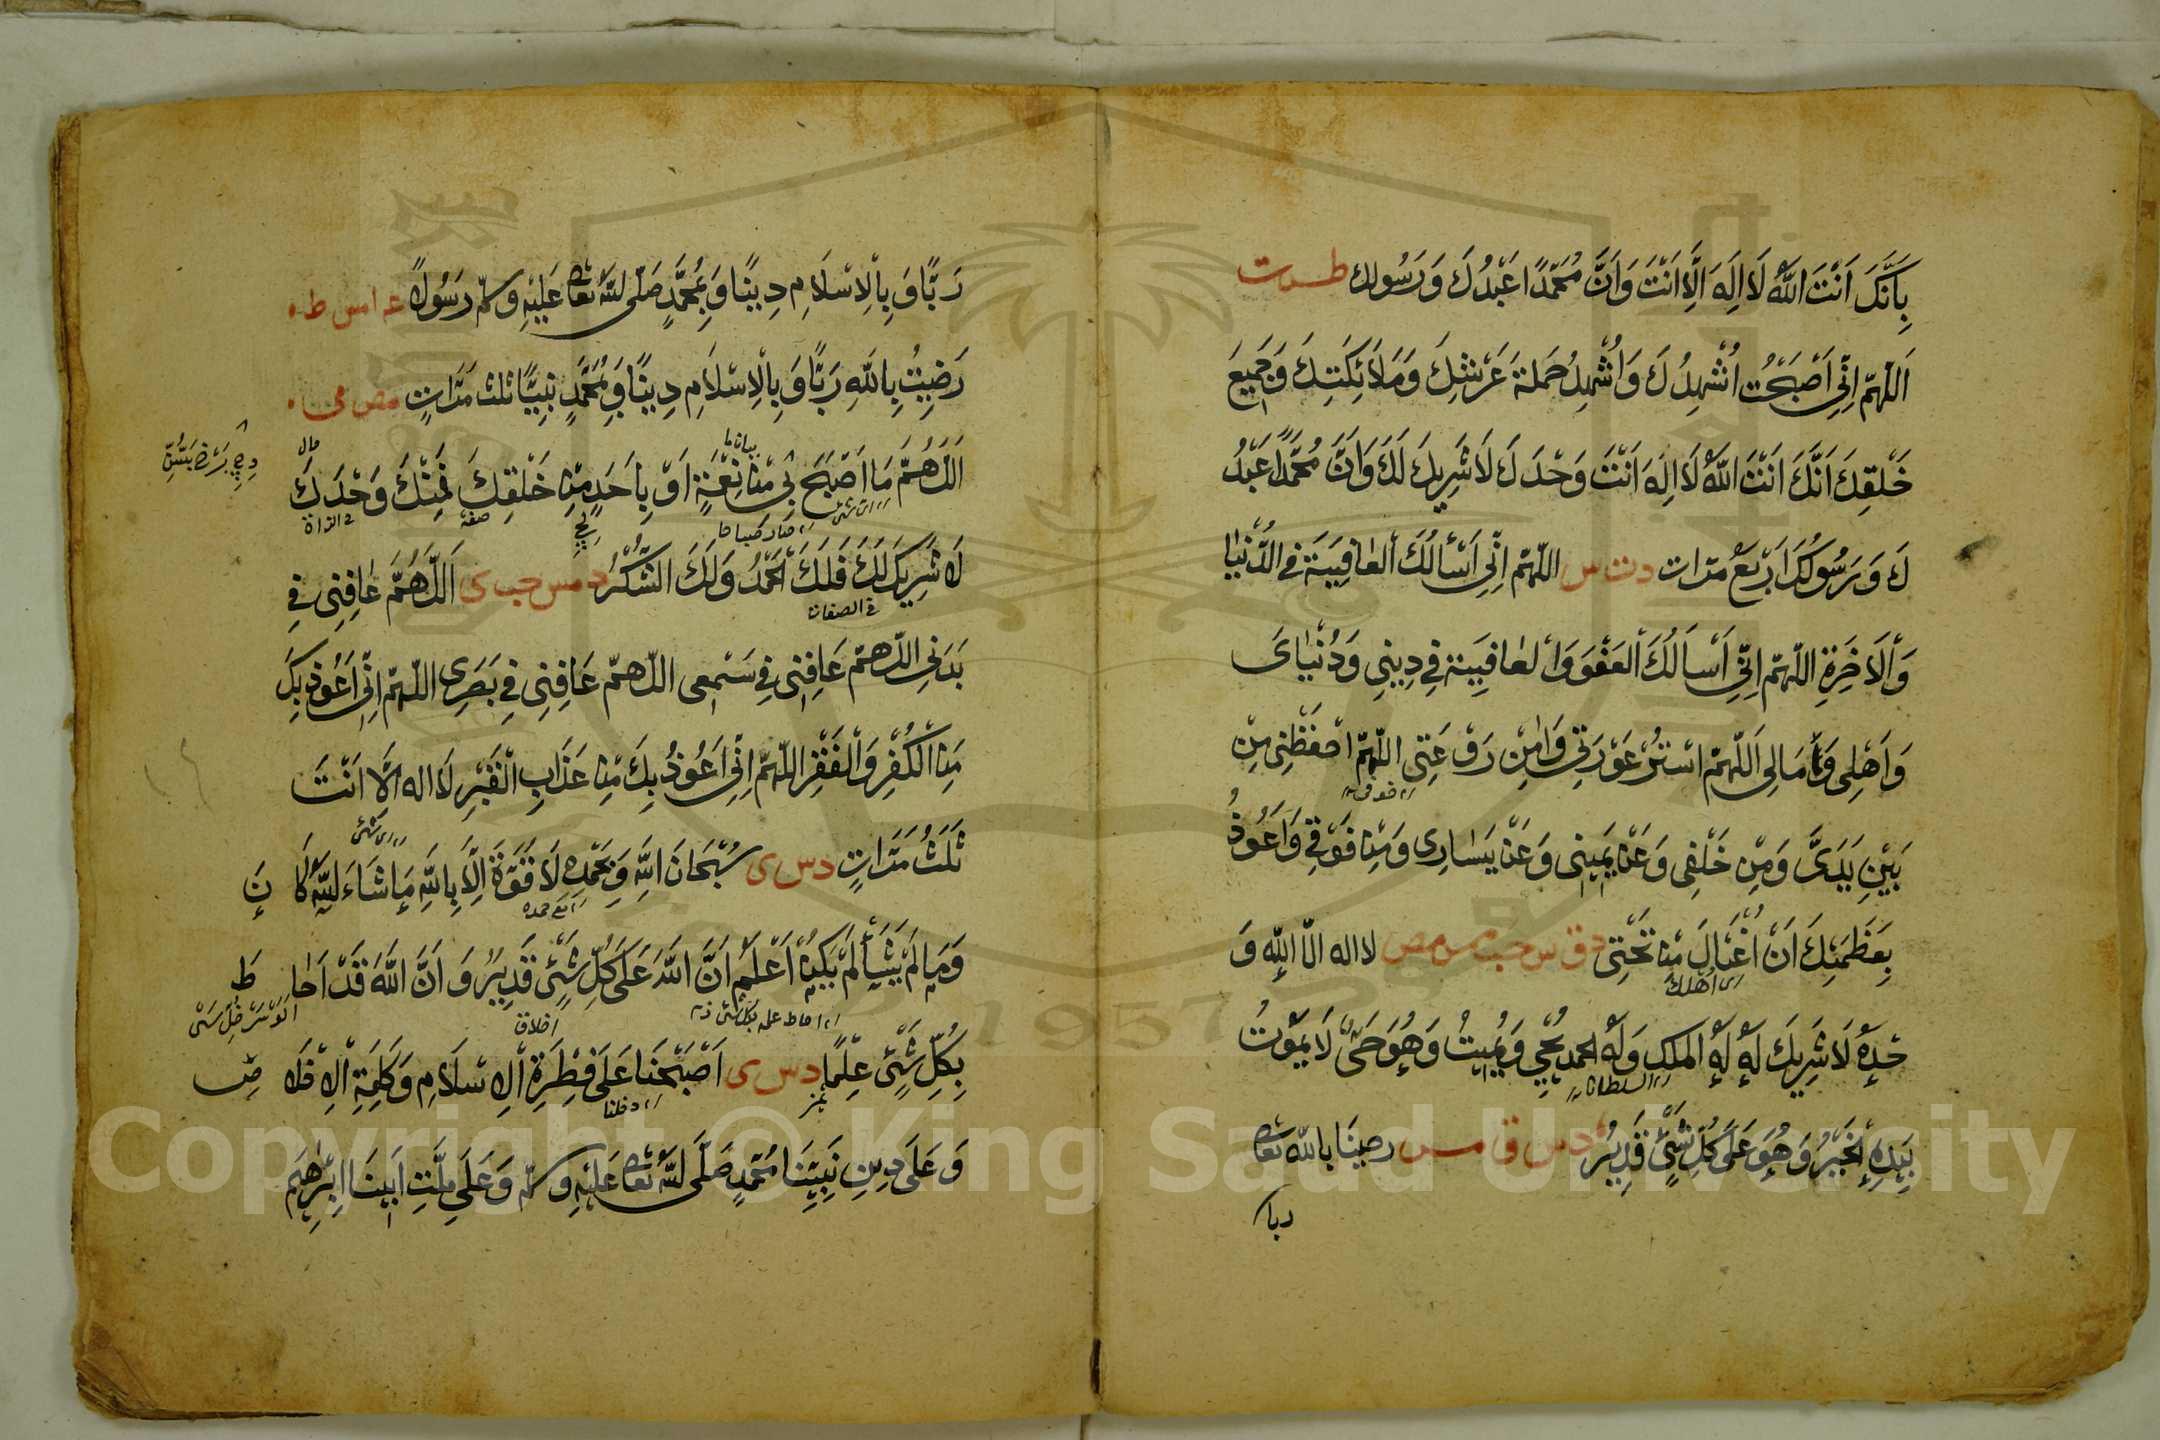 بِاَنَّكَ اَنْتَ اللّٰهُ لَا اِلٰهَ اِلَّا اَنْتَ وَاَنَّ مُحَمَّدًا عَبْدُكَ وَرَسُولك طس ت
اَللّٰهُمَّ اِنِّي اَصْبَحْتُ اُشْهِدُكَ وَاُشْهِدُ حَمَلةَ عَرْشِكَ وَمَلَائِكَتِكَ وَجَمِيعَ
خَلْقِكَ اَنَّكَ اَنْتَ اللّٰهُ لَا اِلٰهَ اَنْتَ وَحْدَكَ لَا شَرِيكَ لَكَ وَاَنَّ مُحَمَّدًا عَبْدُ
كَ وَرَسُولُكَ اَرْبَعُ مَرّات د ت س اللّٰهُمّ اِنِّي اَسْأَلُكَ الْعٰافِيَةَ فِي الدُّنْيٰا
وَالْاَخِرَةِ اللّٰهُمّ اِنِّي اَسْاَلُكَ الْعَفْوَ وَالْعٰافِيَة فِي دِينِي وَدُنْيٰاىَ
وَاَهْلِى وَمَالِى اَللّٰهُمّ اسْتُرْ عَوْرَتِي وَاٰمِنْ رَوْعَتِى اللّٰهُمّ احْفَظْنِى مِنْ
خوفى
بَيْنِ يَدَىَّ وَمِنْ خَلْفِى وَعَنْ يَمِينِى وَعَنْ يَسٰارِى وَمِنْ فَوْقِي وَاَعُوذُ
بِعَظَمَتِكَ اَنْ اُغْتَالَ مِنْ تَحْتِى د ق س حب مس مص لا اله الّا اللّٰه وَ
اى اُهْلَكَ
حْدَهُ لَا شَرِيكَ لَهُ لَهُ الملك وَلَهُ الحمد يُحْيِي وَيُمِيتُ وَهُوَ حَىٌّ لَا يَمُوتُ
السلطان
بِيَدِهِ الْخَيْرُ وَهُوَ عَلَى كُلِّ شَىْءٍ قَدِيرٌ د س ق مس رضينَا باللّٰه تعا
ربا
رَبًّا وَبِالْاِسْلَامِ دِينًا وَبِمُحَمَّدٍ صَلّى اللّٰهُ تعا عَلَيْهِ وسلّم رَسُولًا عه ا مس ط
رَضِيتُ بِاللّٰهِ رَبًّا وَبِالْاِسْلَامِ دِينًا وَبِمُحَمَّدٍ نَبِيًّا ثلث مَرَّاتٍ مص
حال
اَللّٰهُمَّ مَا اَصْبَحَ بِي مِنْ نِعْمَةٍ اَوْ بِاَحَدٍ مِنْ خَلْقِكَ فَمِنْكَ وَحْدَكَ
صفة
لَا شَرِيكَ لَكَ فَلَكَ الْحَمْدُ وَلَكَ الشُّكْرُ د مس حب ى اَللّٰهُمَّ عٰافِنِى فِي
فى الصفات
بَدَنِى اللّٰهمّ عَافِنِى فِي سَمْعِى اللّٰهمّ عَافِنِى فِي بَصَرِى اللّٰهُمّ اِنِّي اَعُوذُ بِكَ
مِنَ الْكُفْرِ وَالْفَقْرِ اللّٰهُمّ اِنِّي اَعُوذُ بِكَ مِنْ عَذَابِ الْقَبْرِ لَا اله الَّا اَنْتَ
ثَلٰثُ مَرَّاتٍ د س ى سُبْحَانَ اللّٰهِ وَبِحَمْدِهِ لَا قُوَّةَ اِلَّا بِاللّٰهِ مَا شَاءَ اللّٰهُ كَانَ
وَمَا لَمْ يَشَأْ لَمْ يَكُنْ اَعْلَمُ اَنَّ اللّٰهَ عَلَى كُلِّ شَىْءٍ قَدِيرٌ وَاَنَّ اللّٰهَ قَدْ اَحَاطَ
احاط علمه بكل شى
بِكُلِّ شَىْءٍ عِلْمًا د س ى اَصْبَحْنَا عَلَى فِطْرَةِ الْاِسْلَامِ وَكَلِمَةِ الْاِخْلَاصِ
دخلنا
وَعَلَى دِينِ نَبِيِّنَا مُحَمَّدٍ صَلَّى اللّٰهُ تعا عَلَيْهِ وسلّم وَعَلَى مِلَّتِ اَبِينَا اِبْرٰهِيمَ
1957
Copyright © King Saud University